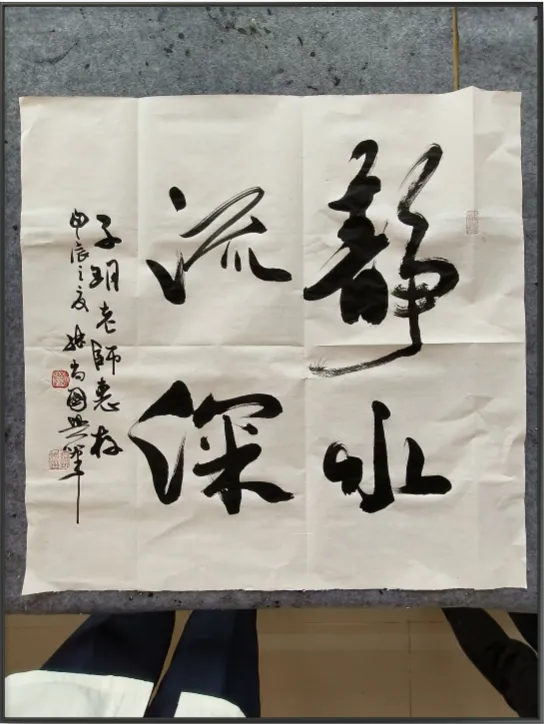 静水
流深
子玥老師惠存
甲辰之夏